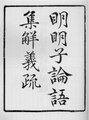 明明子論語
集解義疏